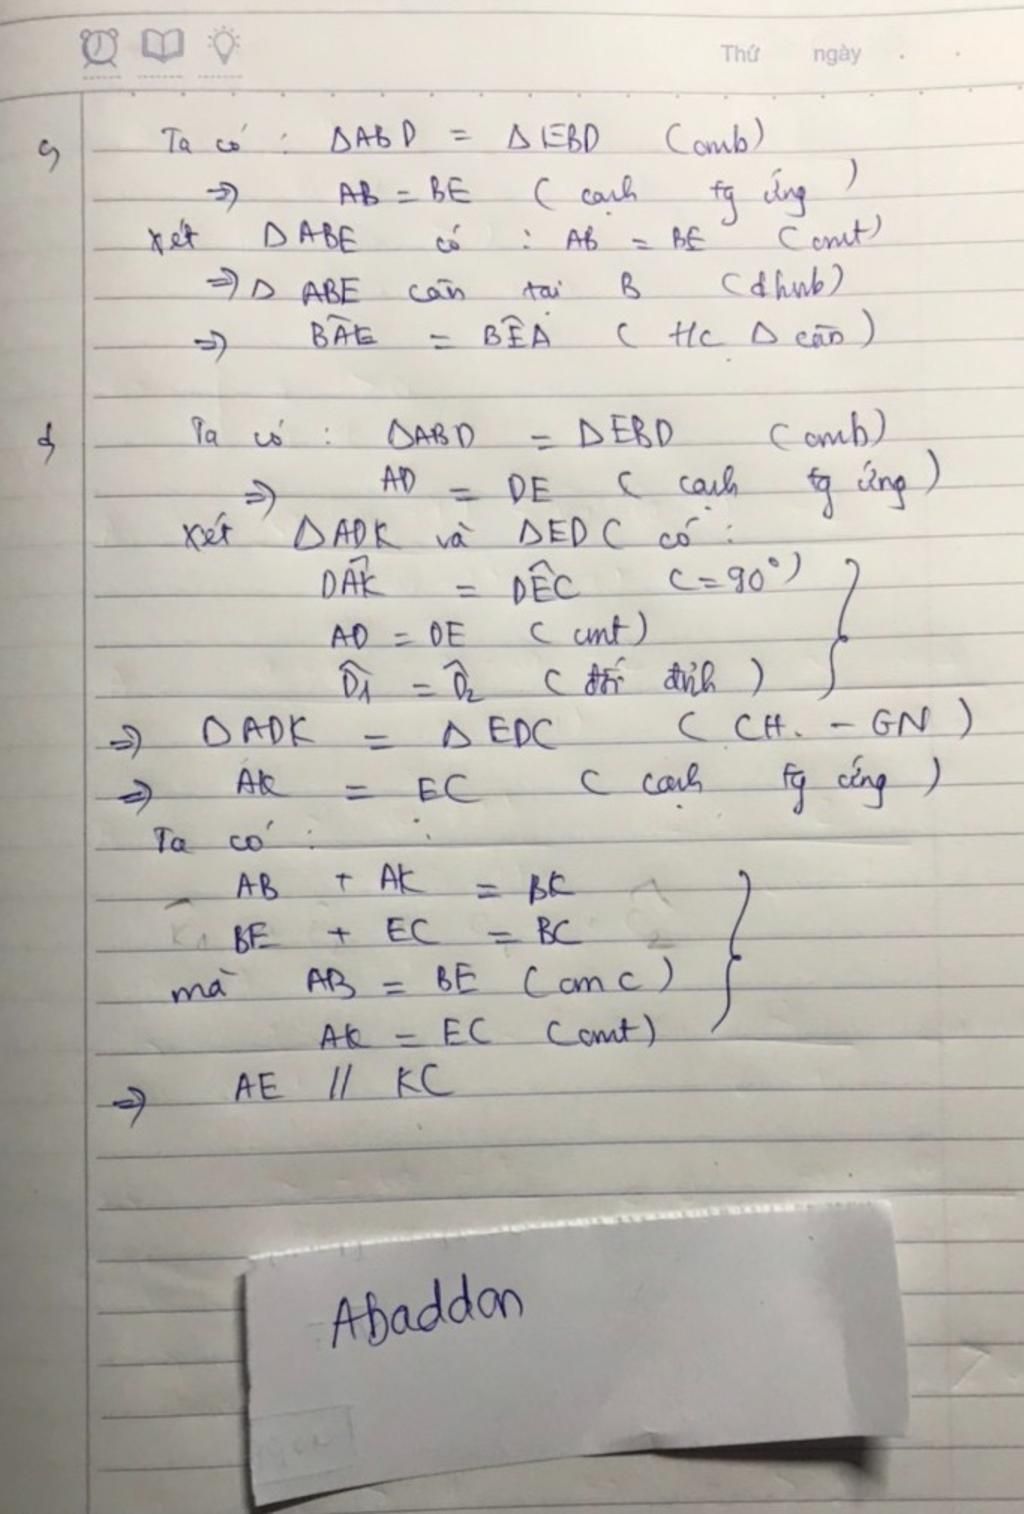 Thứ ngày
c, Ta có : ΔABD = ΔEBD (cmb)
=> AB = BE ( cạnh tg ứng )
Xét ΔABE có : AB = BE (cmt)
=> Δ ABE cân tại B (dhnb)
=> BÂE = BÊA ( t/c Δ cân )
d, Ta có : ΔABD = ΔEBD (cmb)
=> AD = DE ( cạnh tg ứng )
Xét ΔADK và ΔEDC có :
DÂK = DÊC (=90°)
AD = DE ( cmt )
D̂1 = D̂2 ( đối đỉnh )
=> ΔADK = ΔEDC ( CH. - GN )
=> AK = EC ( cạnh tg ứng )
Ta có :
AB + AK = BK
BE + EC = BC
mà AB = BE (cmc)
AK = EC (cmt)
=> AE // KC
Abaddon